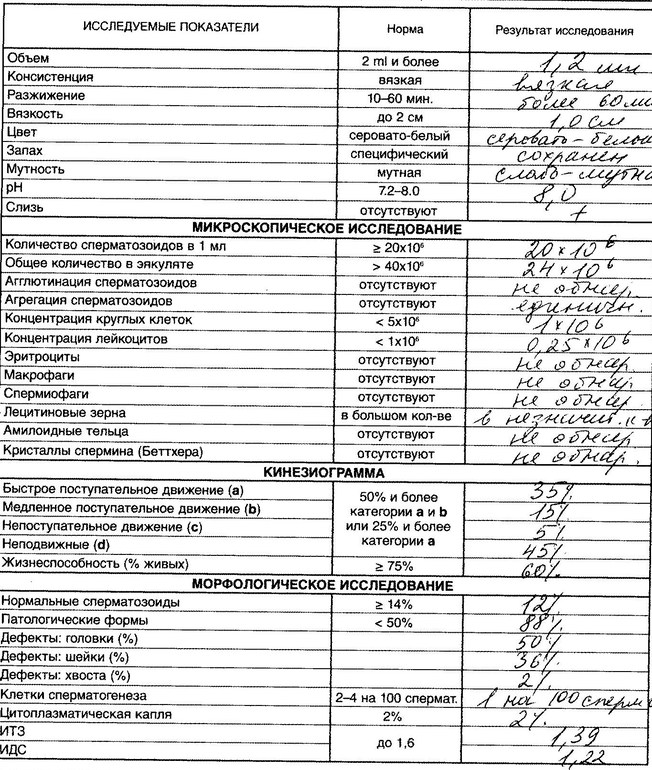 ИССЛЕДУЕМЫЕ ПОКАЗАТЕЛИ Норма Результат исследования
Объем 2 ml и более 1,2 мл
Консистенция вязкая вязкая
Разжижение 10–60 мин. более 60 ми
Вязкость до 2 см 1,0 см
Цвет серовато-белый серовато-белый
Запах специфический сохранен
Мутность мутная слабо-мутна
pH 7.2–8.0 8,0
Слизь отсутствуют +
МИКРОСКОПИЧЕСКОЕ ИССЛЕДОВАНИЕ
Количество сперматозоидов в 1 мл ≥ 20x10⁶ 20×10⁶
Общее количество в эякуляте > 40x10⁶ 24×10⁶
Агглютинация сперматозоидов отсутствуют не обнар.
Агрегация сперматозоидов отсутствуют единичн.
Концентрация круглых клеток < 5x10⁶ 1×10⁶
Концентрация лейкоцитов < 1x10⁶ 0,25×10⁶
Эритроциты отсутствуют не обнар.
Макрофаги отсутствуют не обнар.
Спермиофаги отсутствуют не обнар.
Лецитиновые зерна в большом кол-ве в незначит. к-в
Амилоидные тельца отсутствуют не обнар
Кристаллы спермина (Беттхера) отсутствуют не обнар.
КИНЕЗИОГРАММА
Быстрое поступательное движение (a) 50% и более 35%
Медленное поступательное движение (b) категории a и b 15%
Непоступательное движение (c) или 25% и более 5%
Неподвижные (d) категории a 45%
Жизнеспособность (% живых) ≥ 75% 60%
МОРФОЛОГИЧЕСКОЕ ИССЛЕДОВАНИЕ
Нормальные сперматозоиды ≥ 14% 12%
Патологические формы < 50% 88%
Дефекты: головки (%) 50%
Дефекты: шейки (%) 36%
Дефекты: хвоста (%) 2%
Клетки сперматогенеза 2–4 на 100 спермат. 1 на 100 сперм
Цитоплазматическая капля 2% 2%
ИТЗ до 1,6 1,39
ИДС 1,22